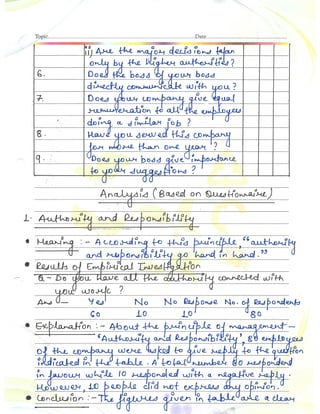 Topic Date
ii) Are the major decisions taken
only by the Higher authorities?
6. Does the boss of your boss
directly communicate with you?
7. Does your company give equal
remuneration to all the employees
doing a similar job?
8. Have you served this company
for more than one year?
9. Does your boss give importance
to your suggestions?
Analysis (Based on Questionnaire)
1. Authority and Responsibility
Meaning :- According to this principle, "authority
and responsibility go hand in hand."
Results of Empirical Investigation
Q - Do you have all the authority connected with
you work?
Ans :- Yes No No Response No. of Respondents
60 10 10 80
Explanation :- About the principle of management -
'Authority and Responsibility', 80 employees
of the company were asked to give reply to the question
indicated in the table. A total number 60 responded
in favour while 10 responded with a negative reply.
However, 10 people did not express any opinion.
Conclusion :- The figures given in table are a clear